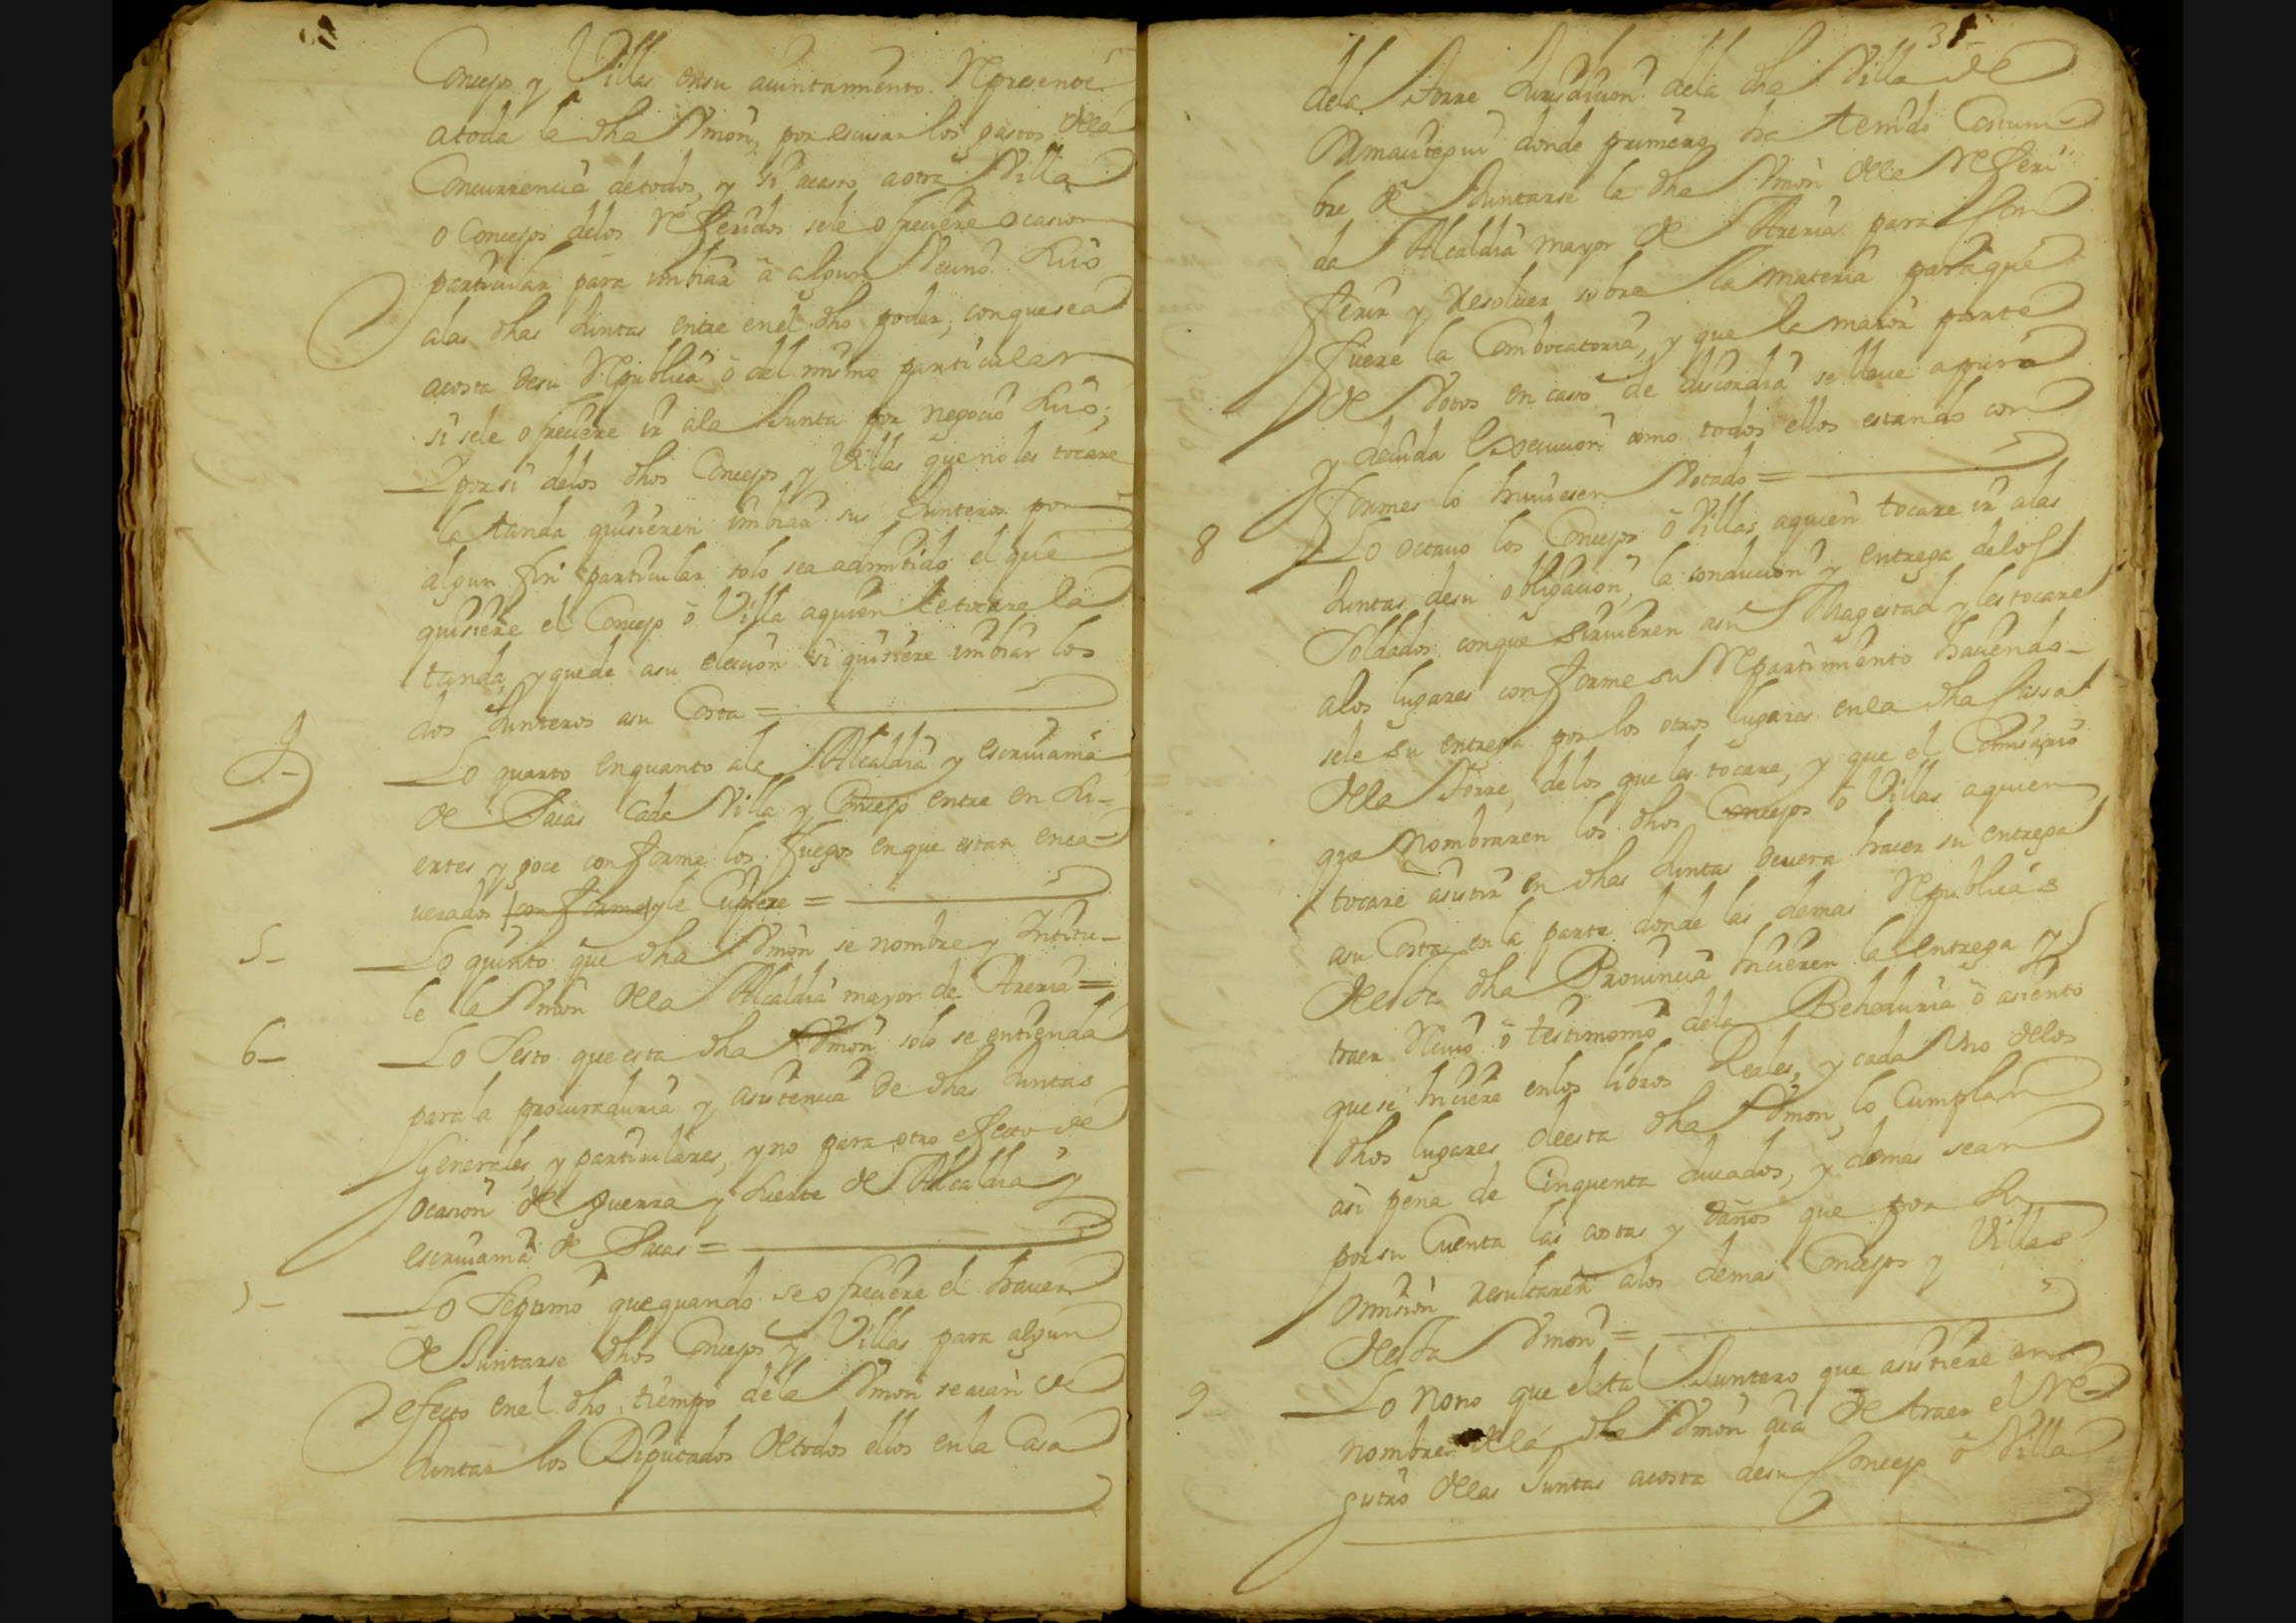 Concejos y Villas en su aiuntamiento Representte
a toda la dha Vnion, por escusar los gastos de la
Concurrencia de todos, y si acaso a otra Villa
o Concejos de los Referidos se le ofreciere ocasion
particular para imbiar a algun Vecino suio
a las dhas Juntas entre en el dho poder, con que sea
a costa de su Republica o del mismo particular
si se le ofreciere ir a la Junta por negocio suio;
Y por si de los dhos Concejos y Villas que no les tocare
la tanda quisieren imbiar sus Junteros por
algun fin particular solo sea admitido el que
quisiere el Concejo o Villa a quien le tocare la
tanda, y quede a su eleccion si quisiere imbiar los
dos Junteros a su Costa =
4 - Lo quarto en quanto a la Alcaldia y escriuania
de Sacas Cada Villa y Concejo entre en su-
ertes y goce conforme los fuegos en que estan enca-
uezados conforme y le Cupiere =
5 - Lo quinto que dha Vnion se nombre y Intitu-
le la Vnion de la Alcaldia mayor de Areria =
6 - Lo Sesto que esta dha Vnion solo se entienda
para la procuraduria y asistencia de dhas Juntas
Generales, y particulares, y no para otro efecto de
ocasion de guerra y suerte de Alcaldia y
escriuania de Sacas =
7 - Lo Septimo que quando se ofreciere el hauer
de Juntarse dhos Concejos y Villas para algun
efecto en el dho tiempo de la Vnion se aian de
Juntar los Diputados de todos ellos en la Casa
31
de la Torre Jurisdicion de la dha Villa de
donde primero ha tenido Costum-
bre de Juntarse la dha Vnion de la Referi-
da Alcaldia mayor de Areria para Con
ferir y resoluer sobre la materia para que
fuere la Combocatoria, y que la maior parte
de Votos en caso de discordia se lleue a pura
y deuida execucion como todos ellos estando con
formes lo huuiesen Votado =
8 Lo octauo los Concejos o Villas a quien tocare ir a las
Juntas de su obligacion, la conducion y entrega de los
Soldados con que siruieren a su Magestad y les tocare
a los lugares conforme su Repartimiento haciendo-
sele su entrega por los otros lugares en la dha Cassa
de la Torre, de los que les tocare, y que el Comisario
que nombraren los dhos Concejos o Villas a quien
tocare asistir en dhas Juntas deuera hacer su entrega
a su Costa en la parte donde las demas Republicas
de esta dha Prouincia hicieren la entrega y
traer Reciuo o testimonio de la Beheduria o asiento
que se hiciere en los libros Reales, y cada Vno de los
dhos lugares de esta dha Vnion, lo Cumplan
asi pena de Cinquenta ducados, y demas sean
por su Cuenta las costas y daños que por su
omision resultaren a los demas Concejos y Villas
de esta Vnion =
9 - Lo Nono que el tal Juntero que asistiere en
nombre de la dha Vnion aia de traer el Re-
gistro de las Juntas a costa de su Concejo o Villa